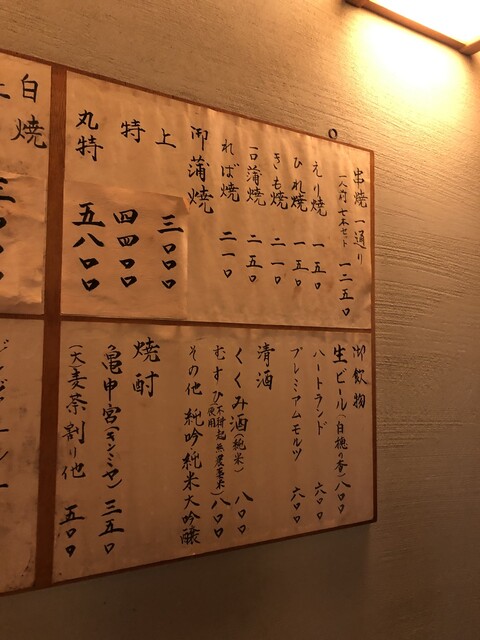 串焼一通り
一人前 七本セット 一二五〇
えり焼 一五〇
ひれ焼 一五〇
きも焼 二一〇
一口蒲焼 二五〇
れば焼 二一〇
御蒲焼
上 三〇〇〇
特 四四〇〇
丸特 五八〇〇
白焼
上 三〇〇〇
御飲物
生ビール(白穂乃香)八〇〇
ハートランド 六〇〇
プレミアムモルツ 六〇〇
清酒
くくみ酒(純米) 八〇〇
むすひ 八〇〇
その他 純吟 純米大吟醸
焼酎
亀甲宮(キンミヤ) 三五〇
(大)麦茶割り他 五〇〇